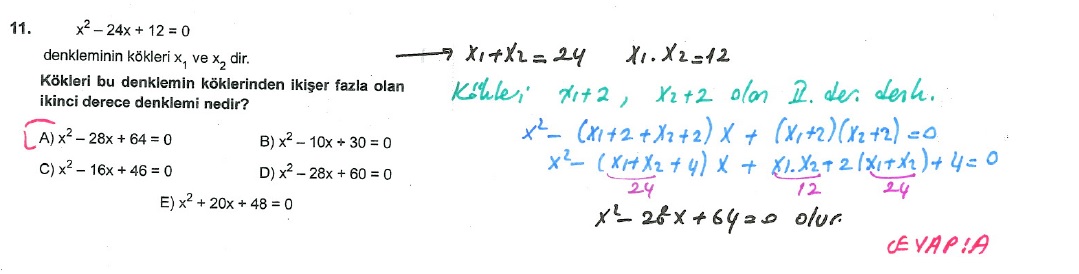 11. x² – 24x + 12 = 0
denkleminin kökleri x₁ ve x₂ dir.
Kökleri bu denklemin köklerinden ikişer fazla olan
ikinci derece denklemi nedir?
A) x² – 28x + 64 = 0 B) x² – 10x + 30 = 0
C) x² – 16x + 46 = 0 D) x² – 28x + 60 = 0
E) x² + 20x + 48 = 0
→ x₁+x₂ = 24 x₁.x₂=12
Kökleri x₁+2, x₂+2 olan II. der. denk.
x² – (x₁+2+x₂+2) x + (x₁+2)(x₂+2) = 0
x² – (x₁+x₂+4) x + x₁.x₂+2(x₁+x₂)+4=0
24 12 24
x² – 28x + 64 = 0 olur.
CEVAP:A